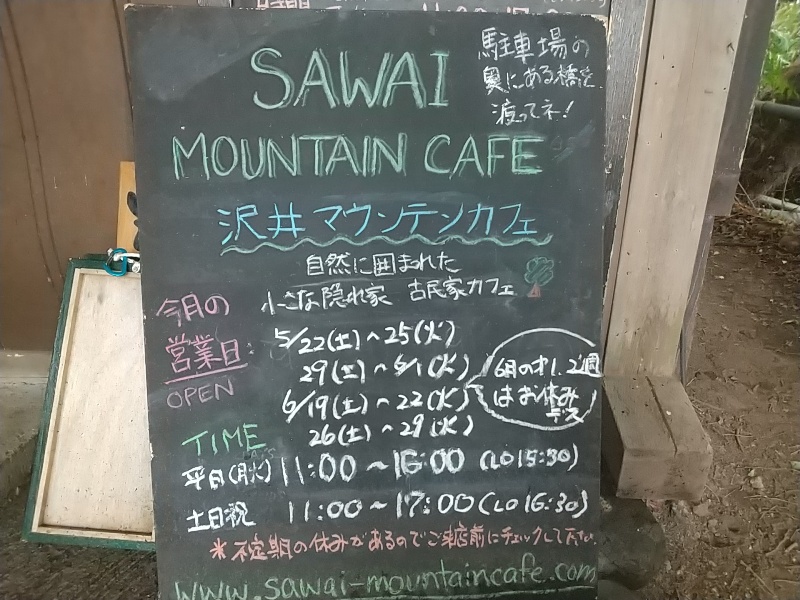 SAWAI
MOUNTAIN CAFE
駐車場の
奥にある橋を
渡ってネ!
沢井マウンテンカフェ
自然に囲まれた
小さな隠れ家 古民家カフェ
今月の
営業日:
OPEN
5/22(土)~25(火)
29(土)~6/1(火)
6/19(土)~22(火)
26(土)~29(火)
6月の才1.2週
はお休み
デス
TIME
平日(月火) 11:00~16:00 (LO15:30)
土日祝 11:00~17:00 (LO16:30)
*不定期の休みがあるのでご来店前にチェックして下さい
www.sawai-mountaincafe.com